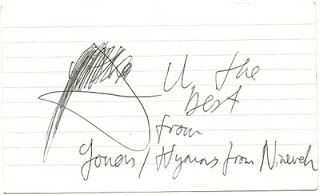 All the
best
from
Jonas / Hymns from Nineveh